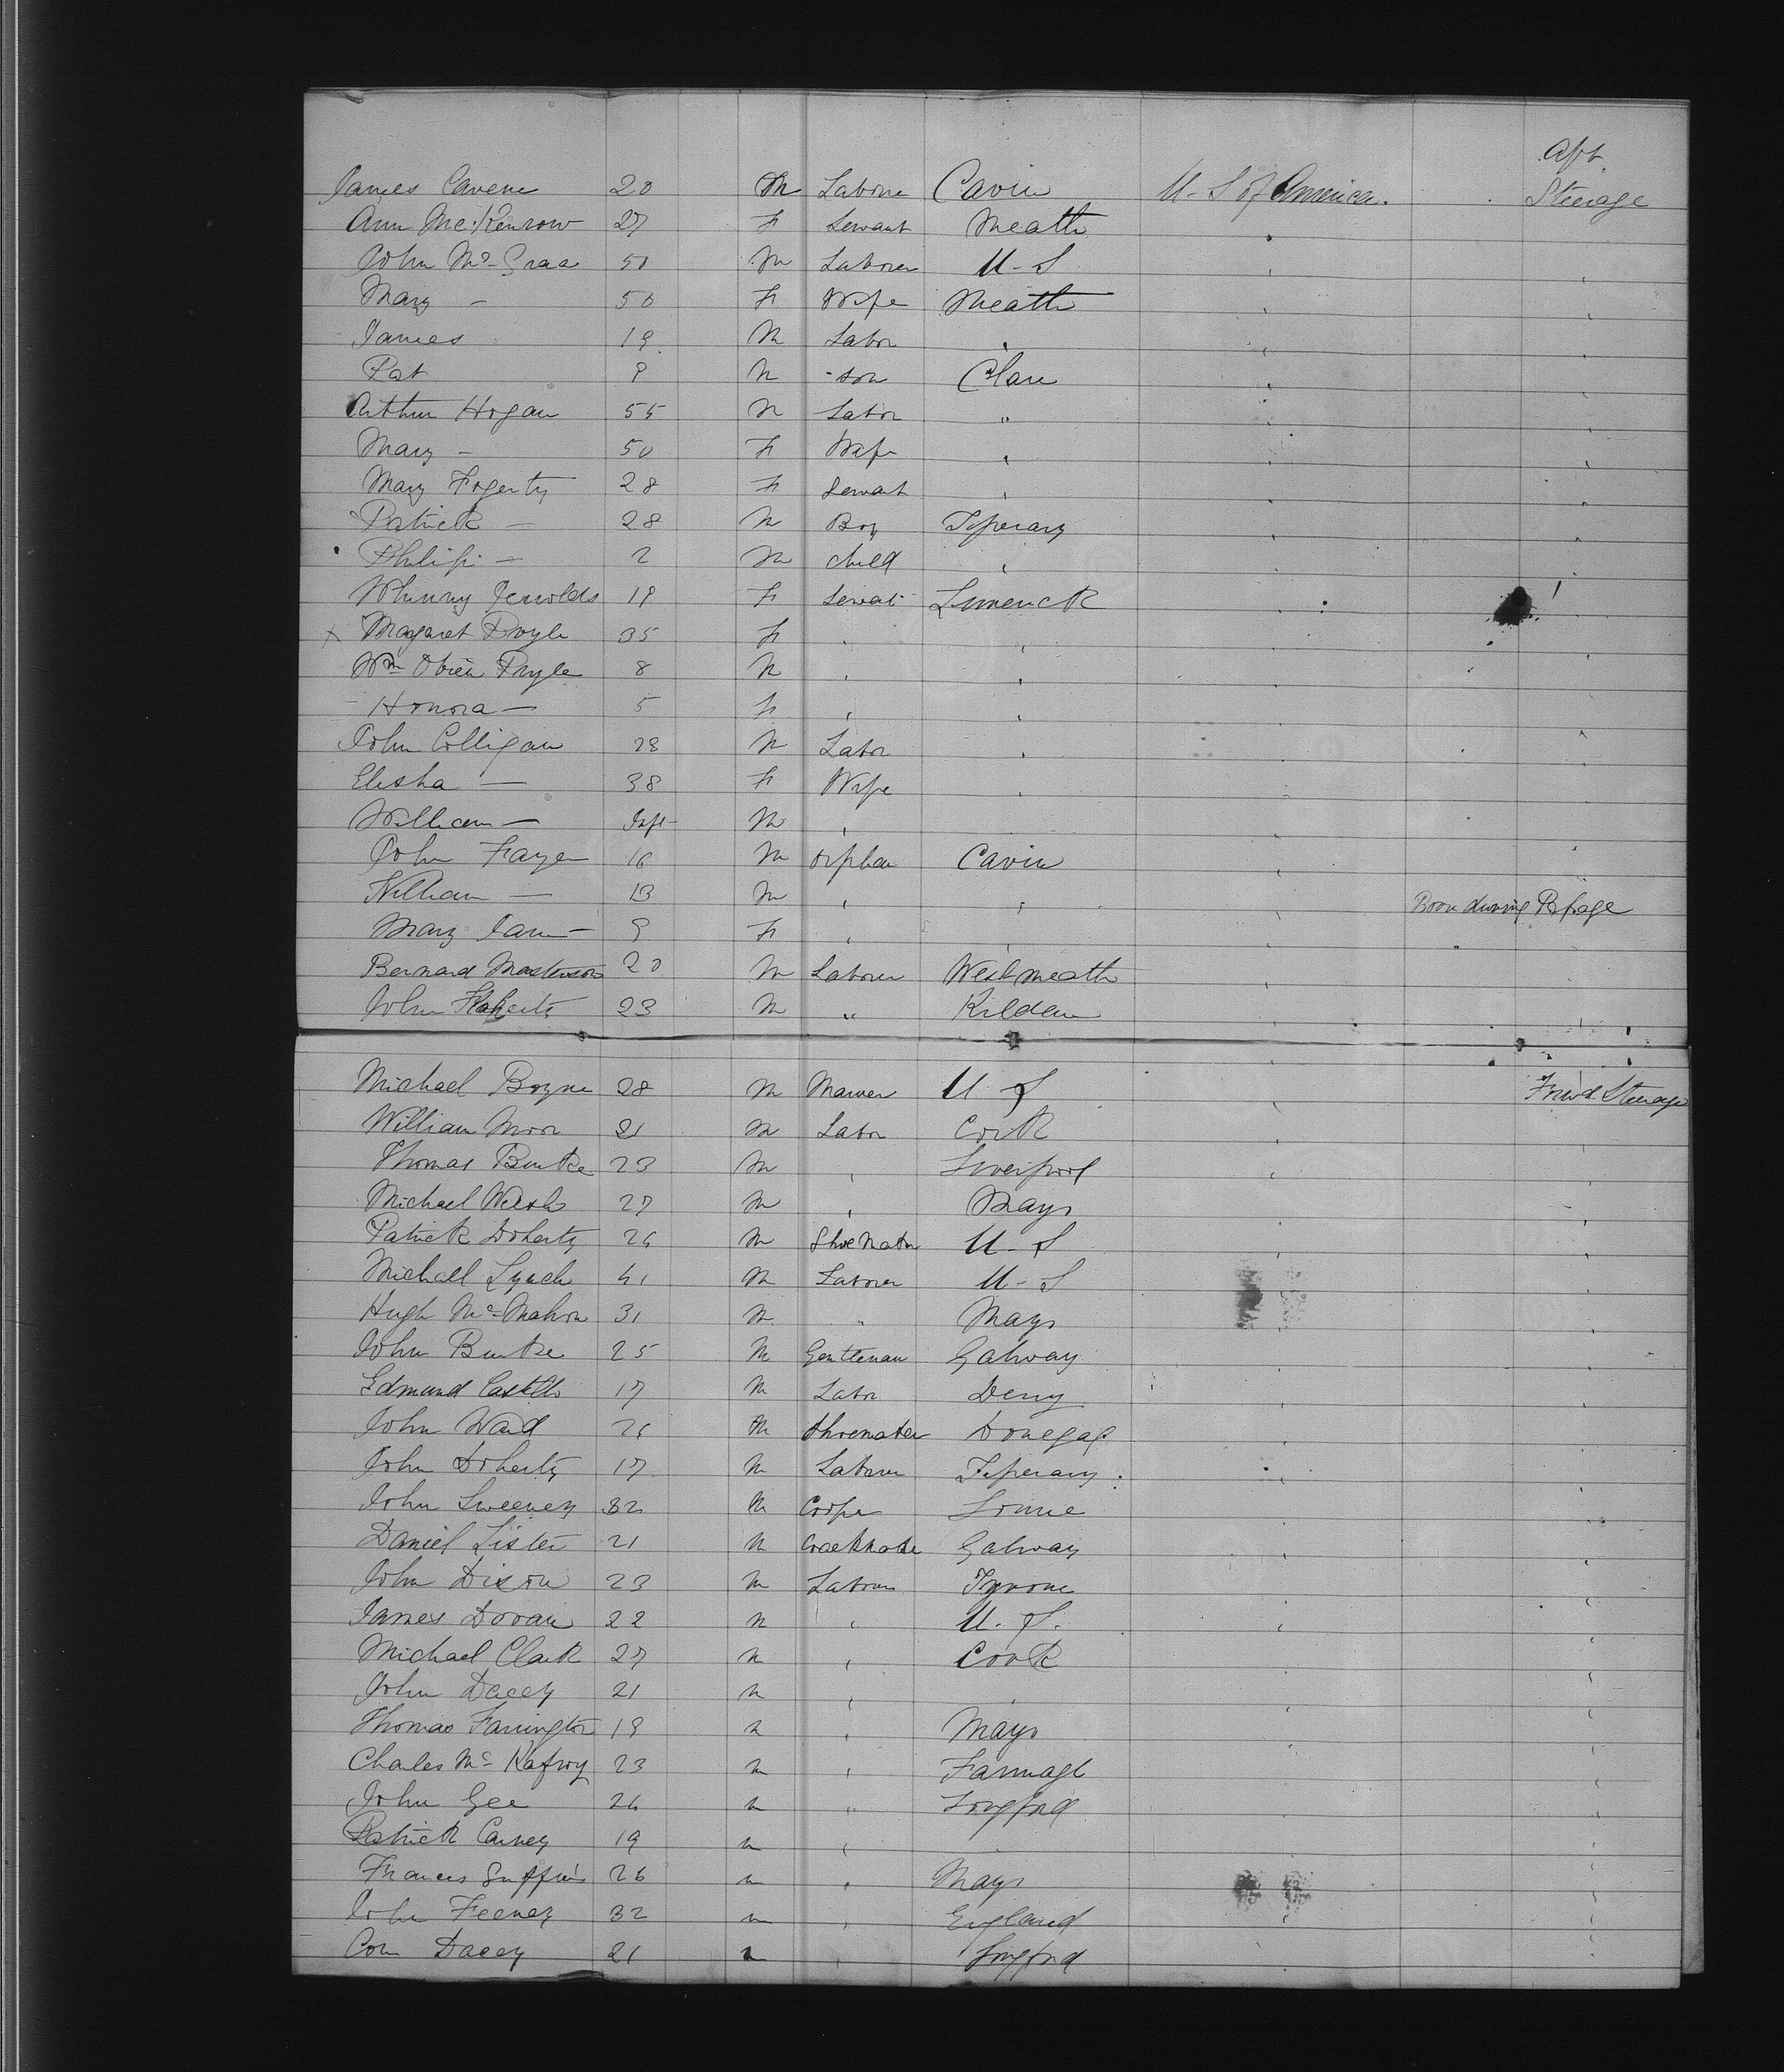 Aft
James Cavene 20 M Labore Cavin U-S of America. Steerage
Ann Mc.Kenrow 27 F Servant Meath
John Mc-Graa 50 M Laborer U-S
Mary - 50 F Wife Meath
James 19 M Labor "
Pat 9 M son Clare
Arthur Hogan 55 M Labor "
Mary - 50 F Wife "
Mary Fogerty 28 F Servant "
Patrick - 28 M Boy Tiperary
Philip - 2 M child "
Jerrolds 19 F Servat Limerick
x Magaret Pryle 35 F " "
Wm Obrien Pryle 8 M " "
Honora - 5 F " "
John Colligan 28 M Labor "
Elisha - 38 F Wife "
William - Inft M " "
John Fayen 16 M orphan Cavin
William - 13 M " " Born during Passage
Mary Jane - 9 F " "
Bernard Masterson 20 M Laborer Westmeath
John Flaherty 23 M " Kildare
Michael Boyne 28 M Marner U-S Frwd Steerage
William Moor 21 M Labor Cork
Thomas Burke 23 M " Liverpool
Michael Welsh 27 M " Mayo
Patrick Doherty 26 M Shoe Maker U-S
Michall Lynch 41 M Laborer U-S
Hugh Mc-Mahon 31 M " Mayo
John Burke 25 M Gentleman Galway
Edmund Castello 17 M Labor Derry
John Ward 26 M Shoemaker Donegal
John Doherty 17 M Laborer Tiperary
John Sweeney 32 M Cooper
Daniel Lister 21 M Galway
John Dixon 23 M Laborer Tyrone
James Doran 22 M " U.S.
Michael Clark 27 M " Cork
John Dacey 21 M " "
Thomas Farrington 19 M " Mayo
Charles Mc- 23 M " Farmagh
John Gee 26 M " Longford
Patrick Carney 19 M "
Frances Griffin 26 M " Mayo
John Feeney 32 M " England
Con Dacey 21 M " Longford